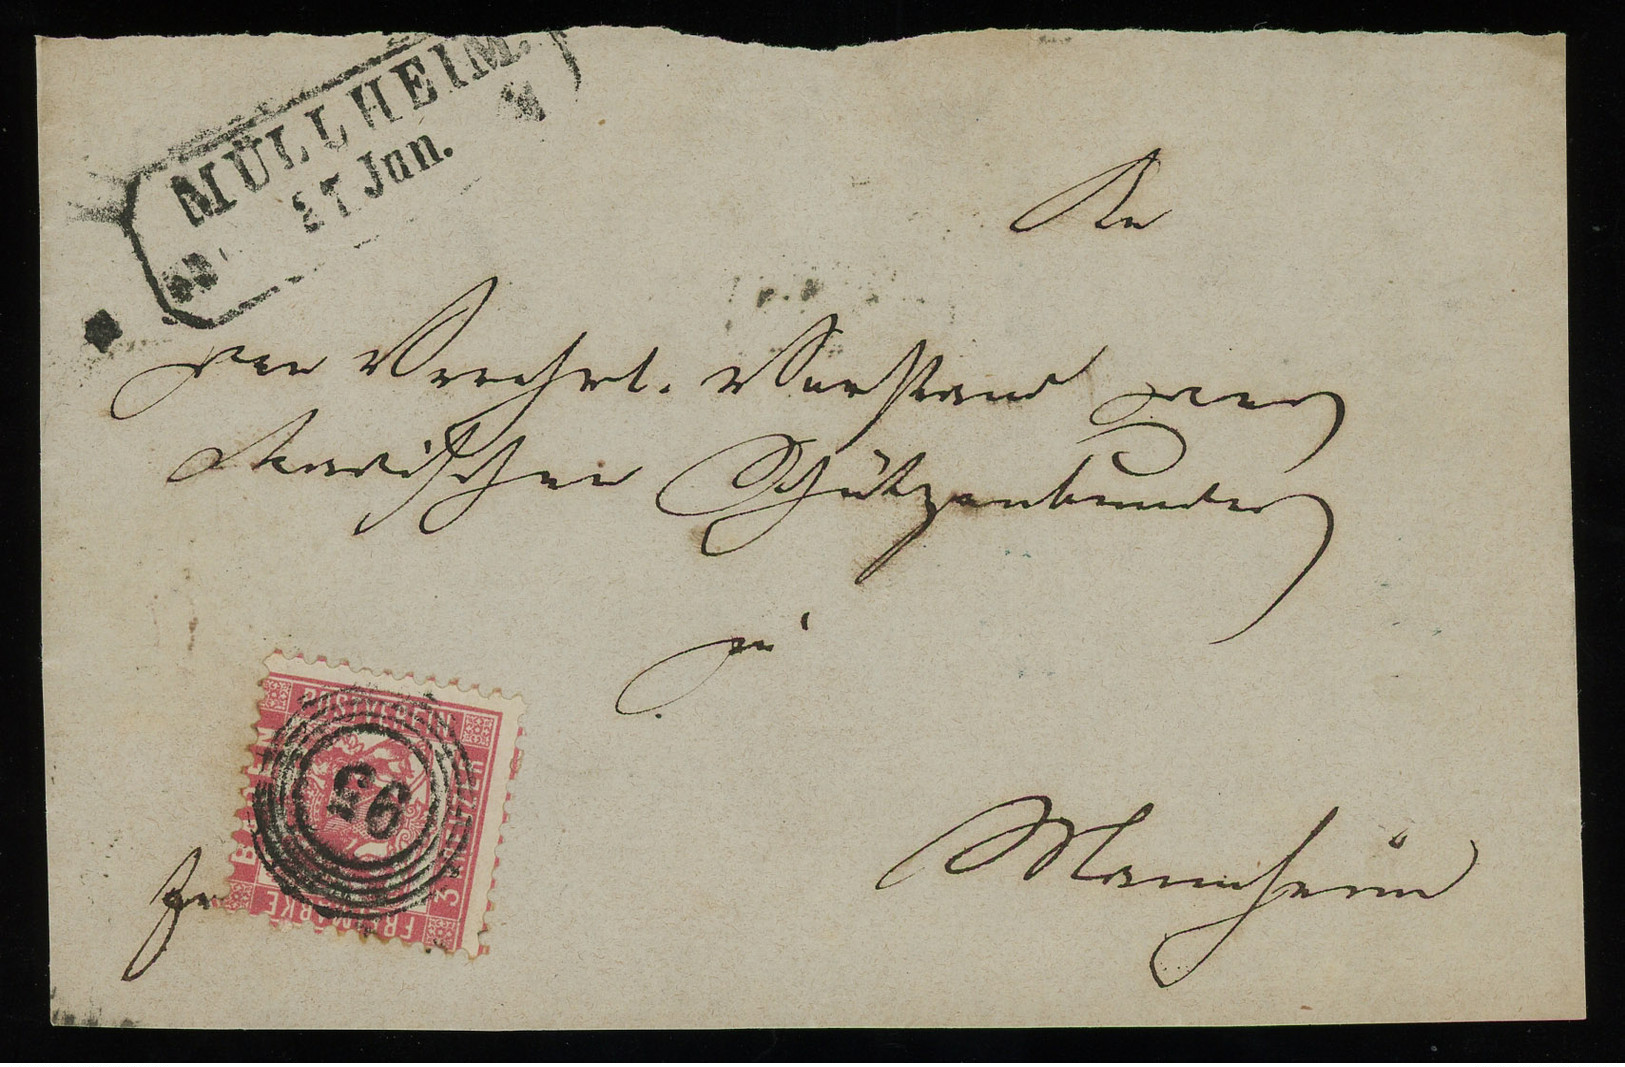 MÜLLHEIM
27 Jun.
An
den Verehrl. Vorstand des
Badischen Schützenbundes
zu
Mannheim
fr
POSTVEREIN
BADEN
FREIMARKE
3
95